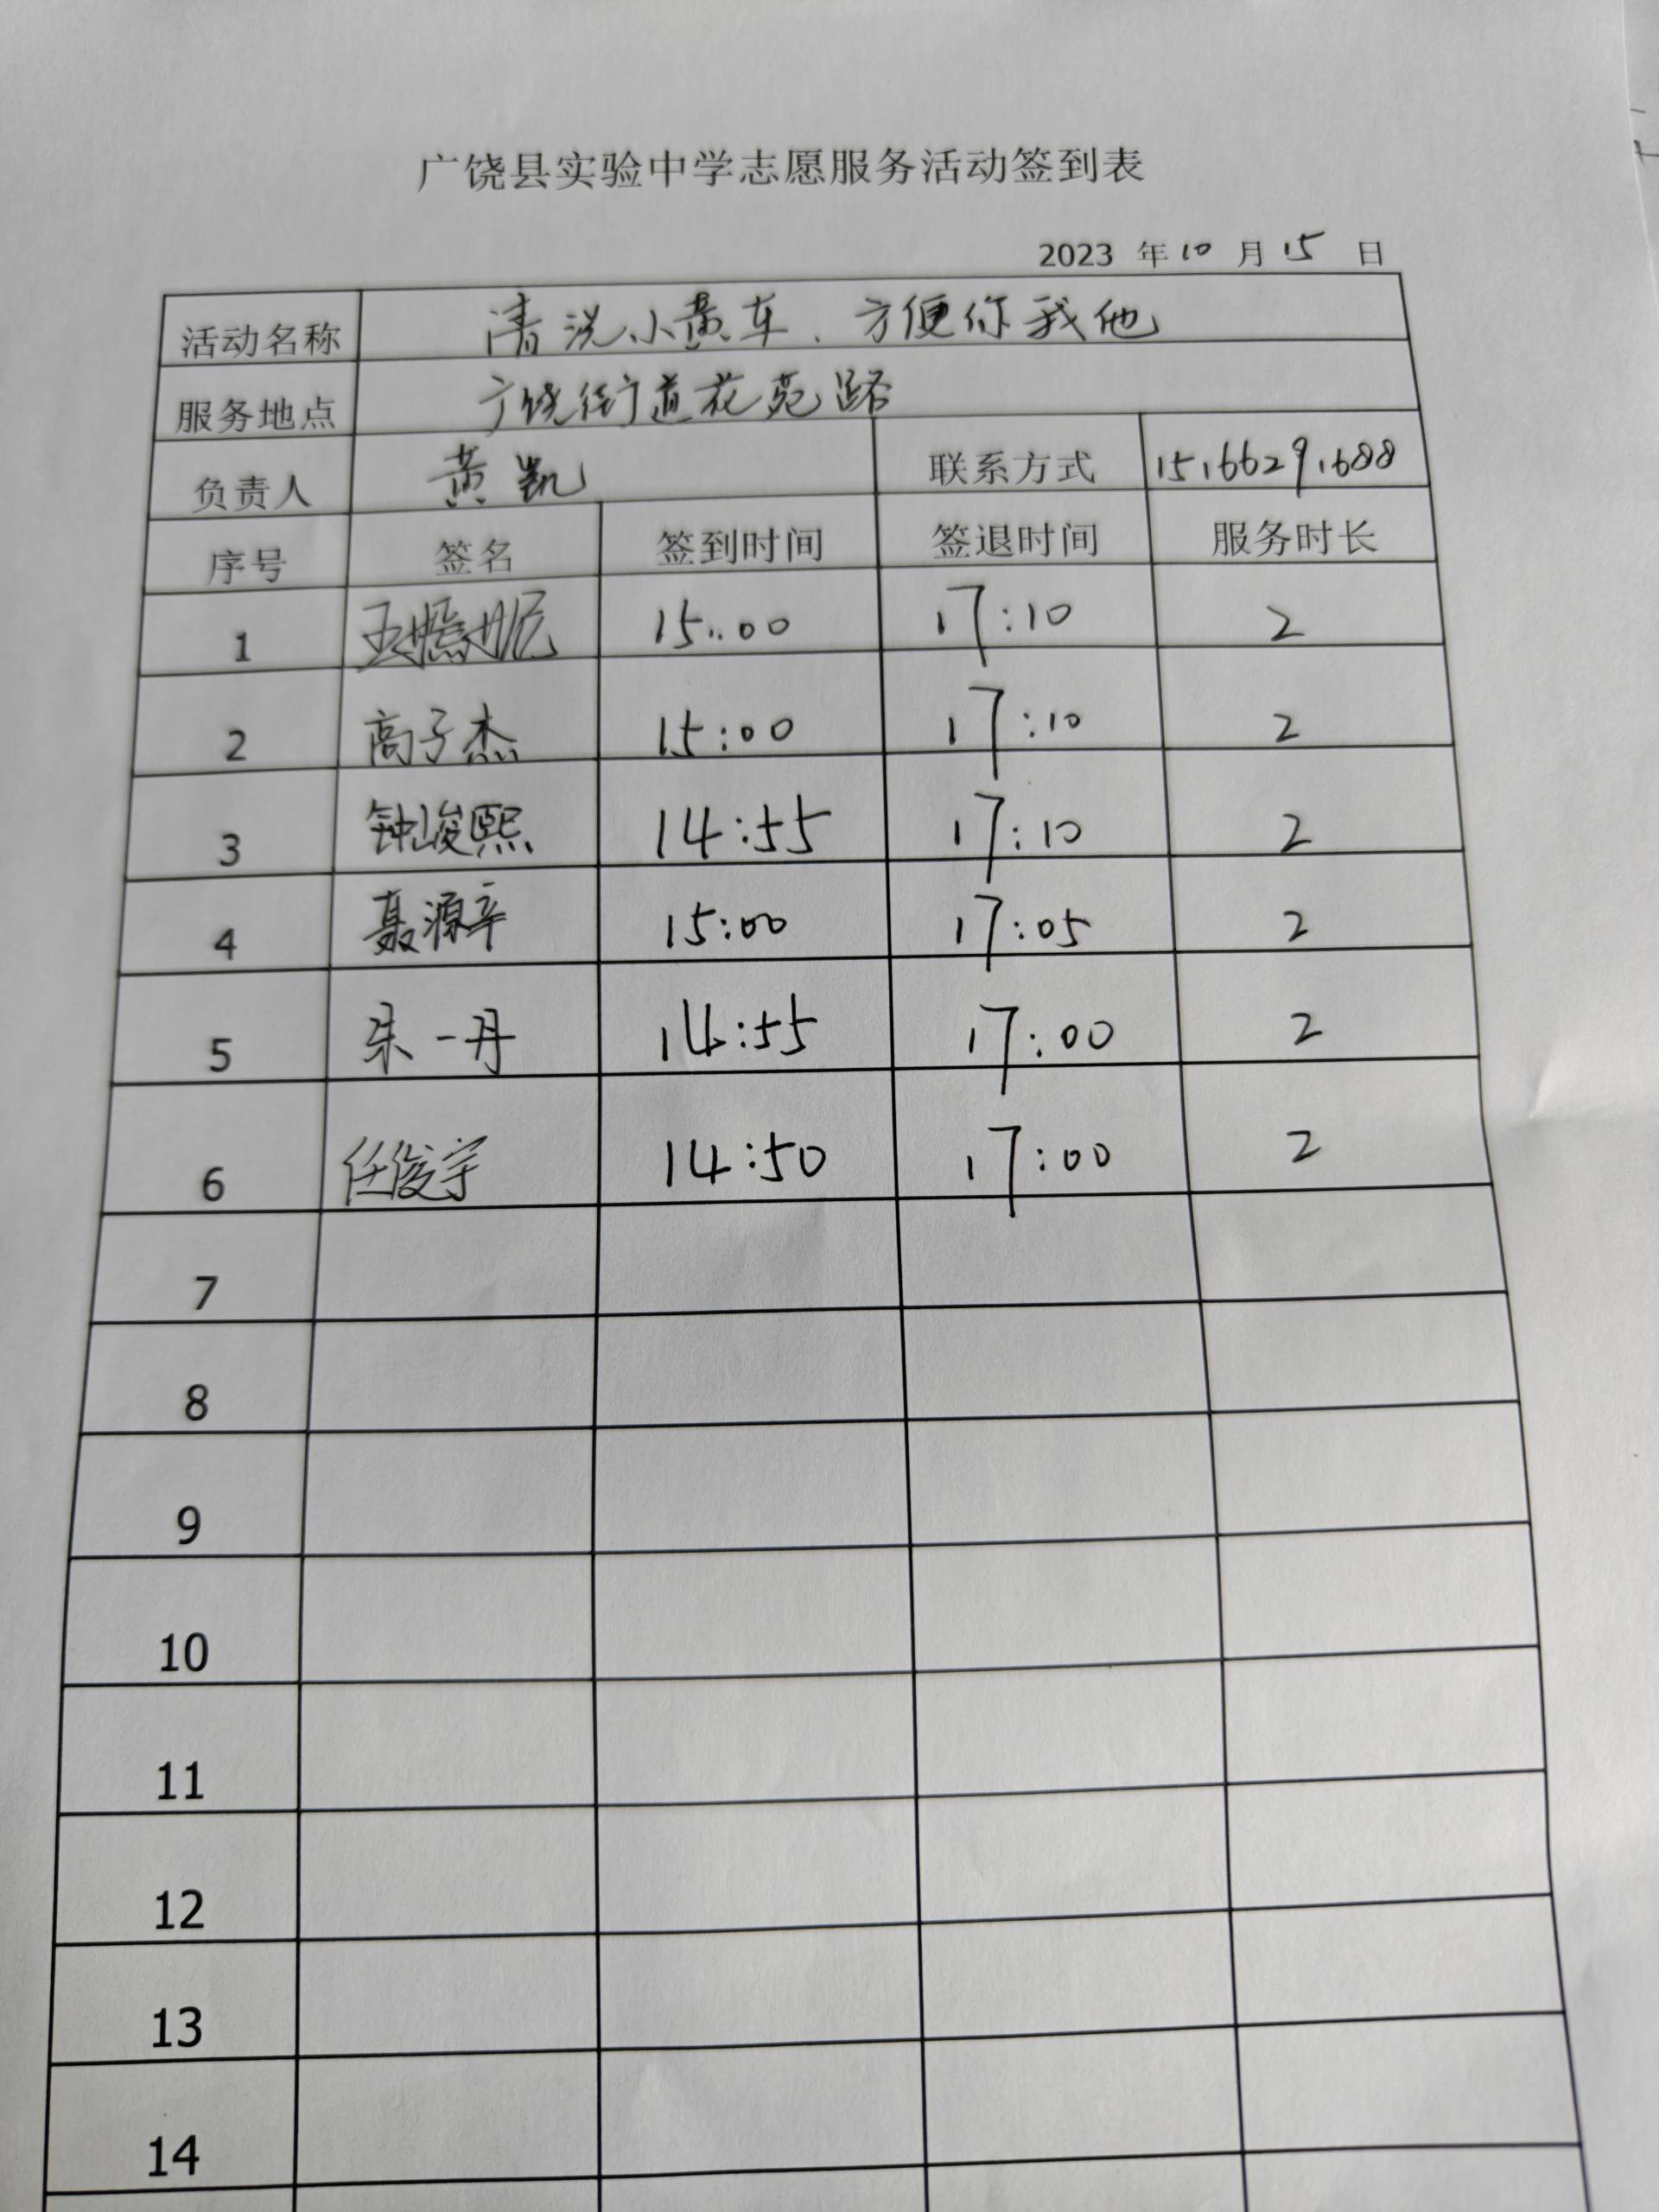 广饶县实验中学志愿服务活动签到表
2023 年 10 月 15 日
活动名称 清洗小黄车、方便你我他
服务地点 广饶街道花苑路
负责人 黄凯 联系方式 15166291688
序号 签名 签到时间 签退时间 服务时长
1 15:00 17:10 2
2 高子杰 15:00 17:10 2
3 钟峻熙 14:55 17:10 2
4 聂源辛 15:00 17:05 2
5 朱一丹 14:55 17:00 2
6 任俊宇 14:50 17:00 2
7
8
9
10
11
12
13
14